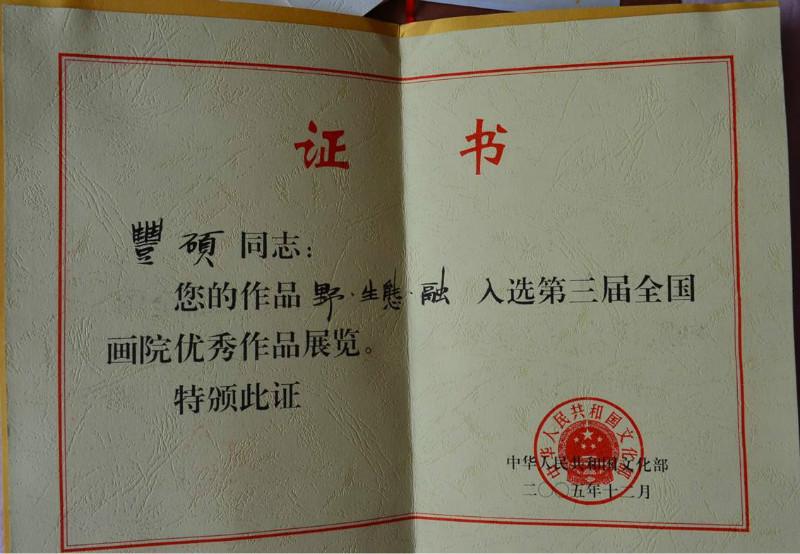 证 书
豐碩 同志：
您的作品 野·生態·融 入选第三届全国
画院优秀作品展览。
特颁此证
中华人民共和国文化部
中华人民共和国文化部
二〇〇五年十二月